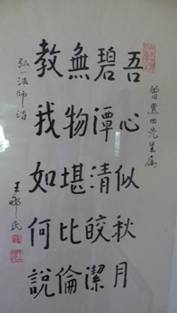 豐田先生屬
吾心似秋月
碧潭清皎潔
無物堪比倫
教我如何說
弘一法師
王